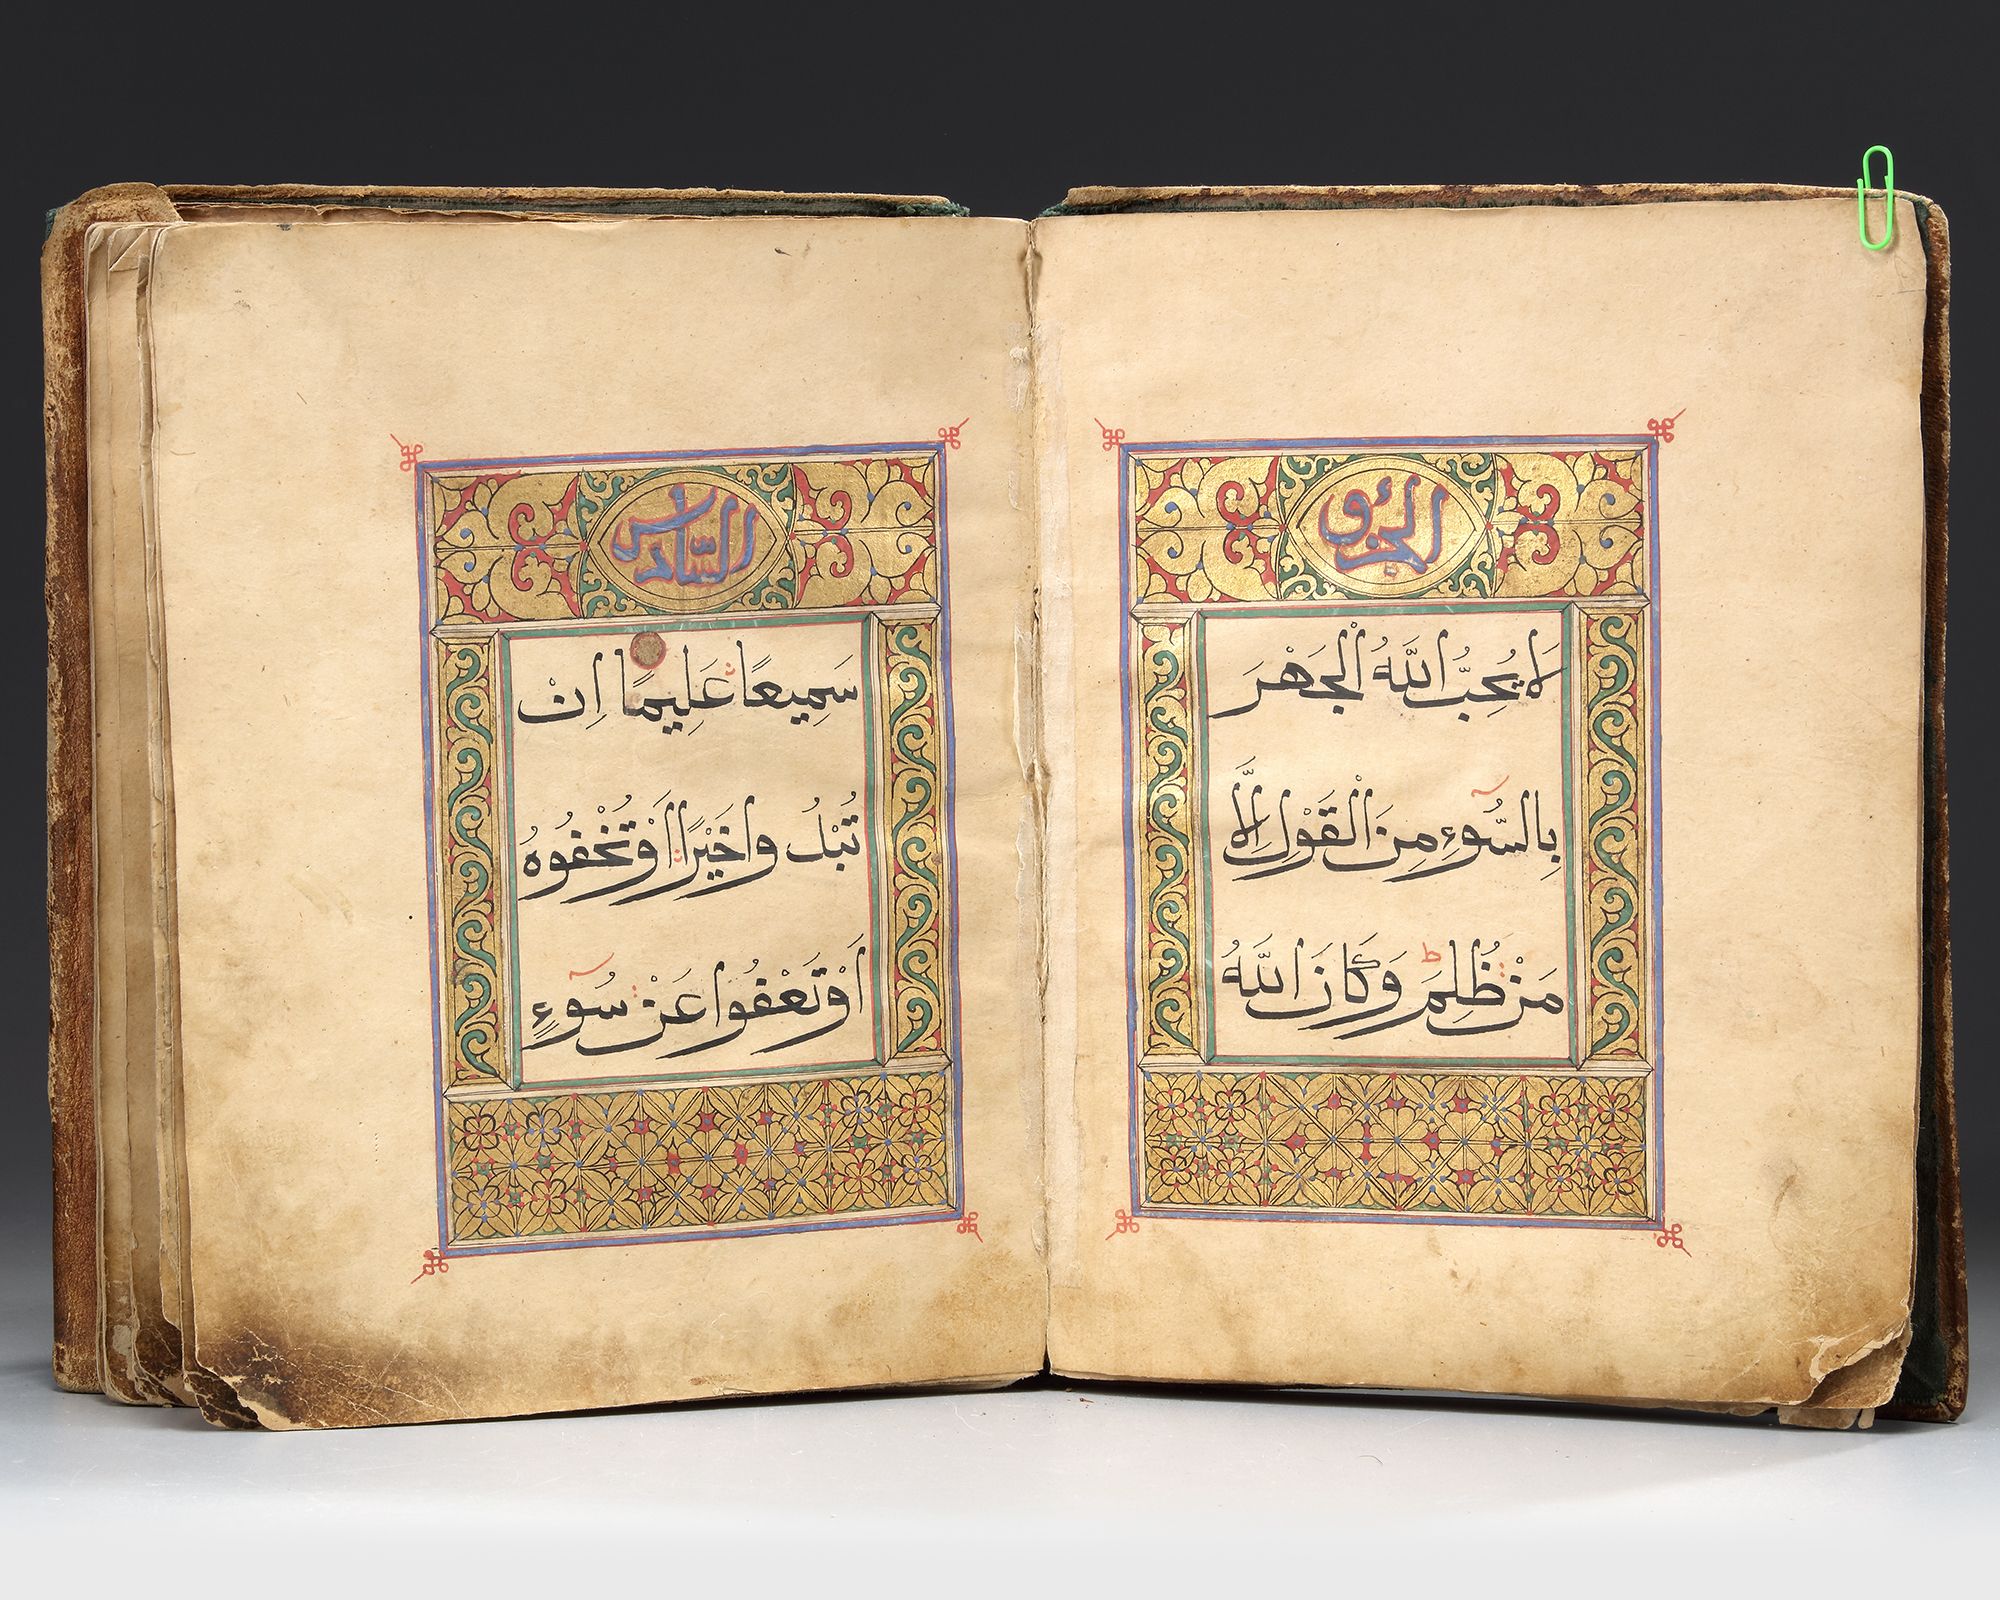 الجزؤ
لَا يُحِبُّ اللَّهُ الْجَهْرَ
بِالسُّوٓءِ مِنَ الْقَوْلِ اِلَّا
مَنْ ظُلِمَ ط وَكَانَ اللَّهُ
السَّادس
سَمِيعًا عَلِيمًا اِنْ
تُبْدُوا خَيْرًا اَوْ تُخْفُوهُ
اَوْ تَعْفُوا عَنْ سُوٓءٍ